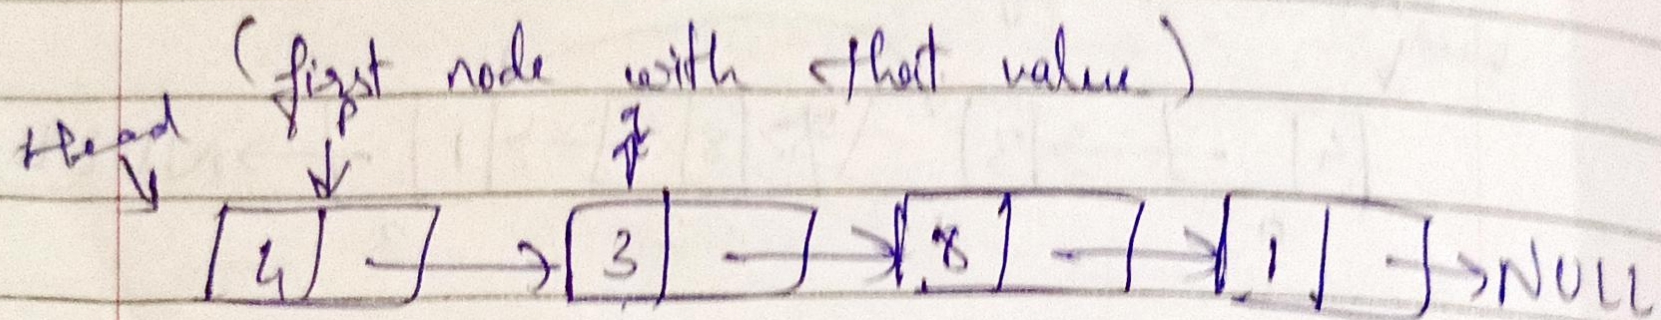 (first node with that value)
Head p q
4 → 3 → 8 → 1 → NULL